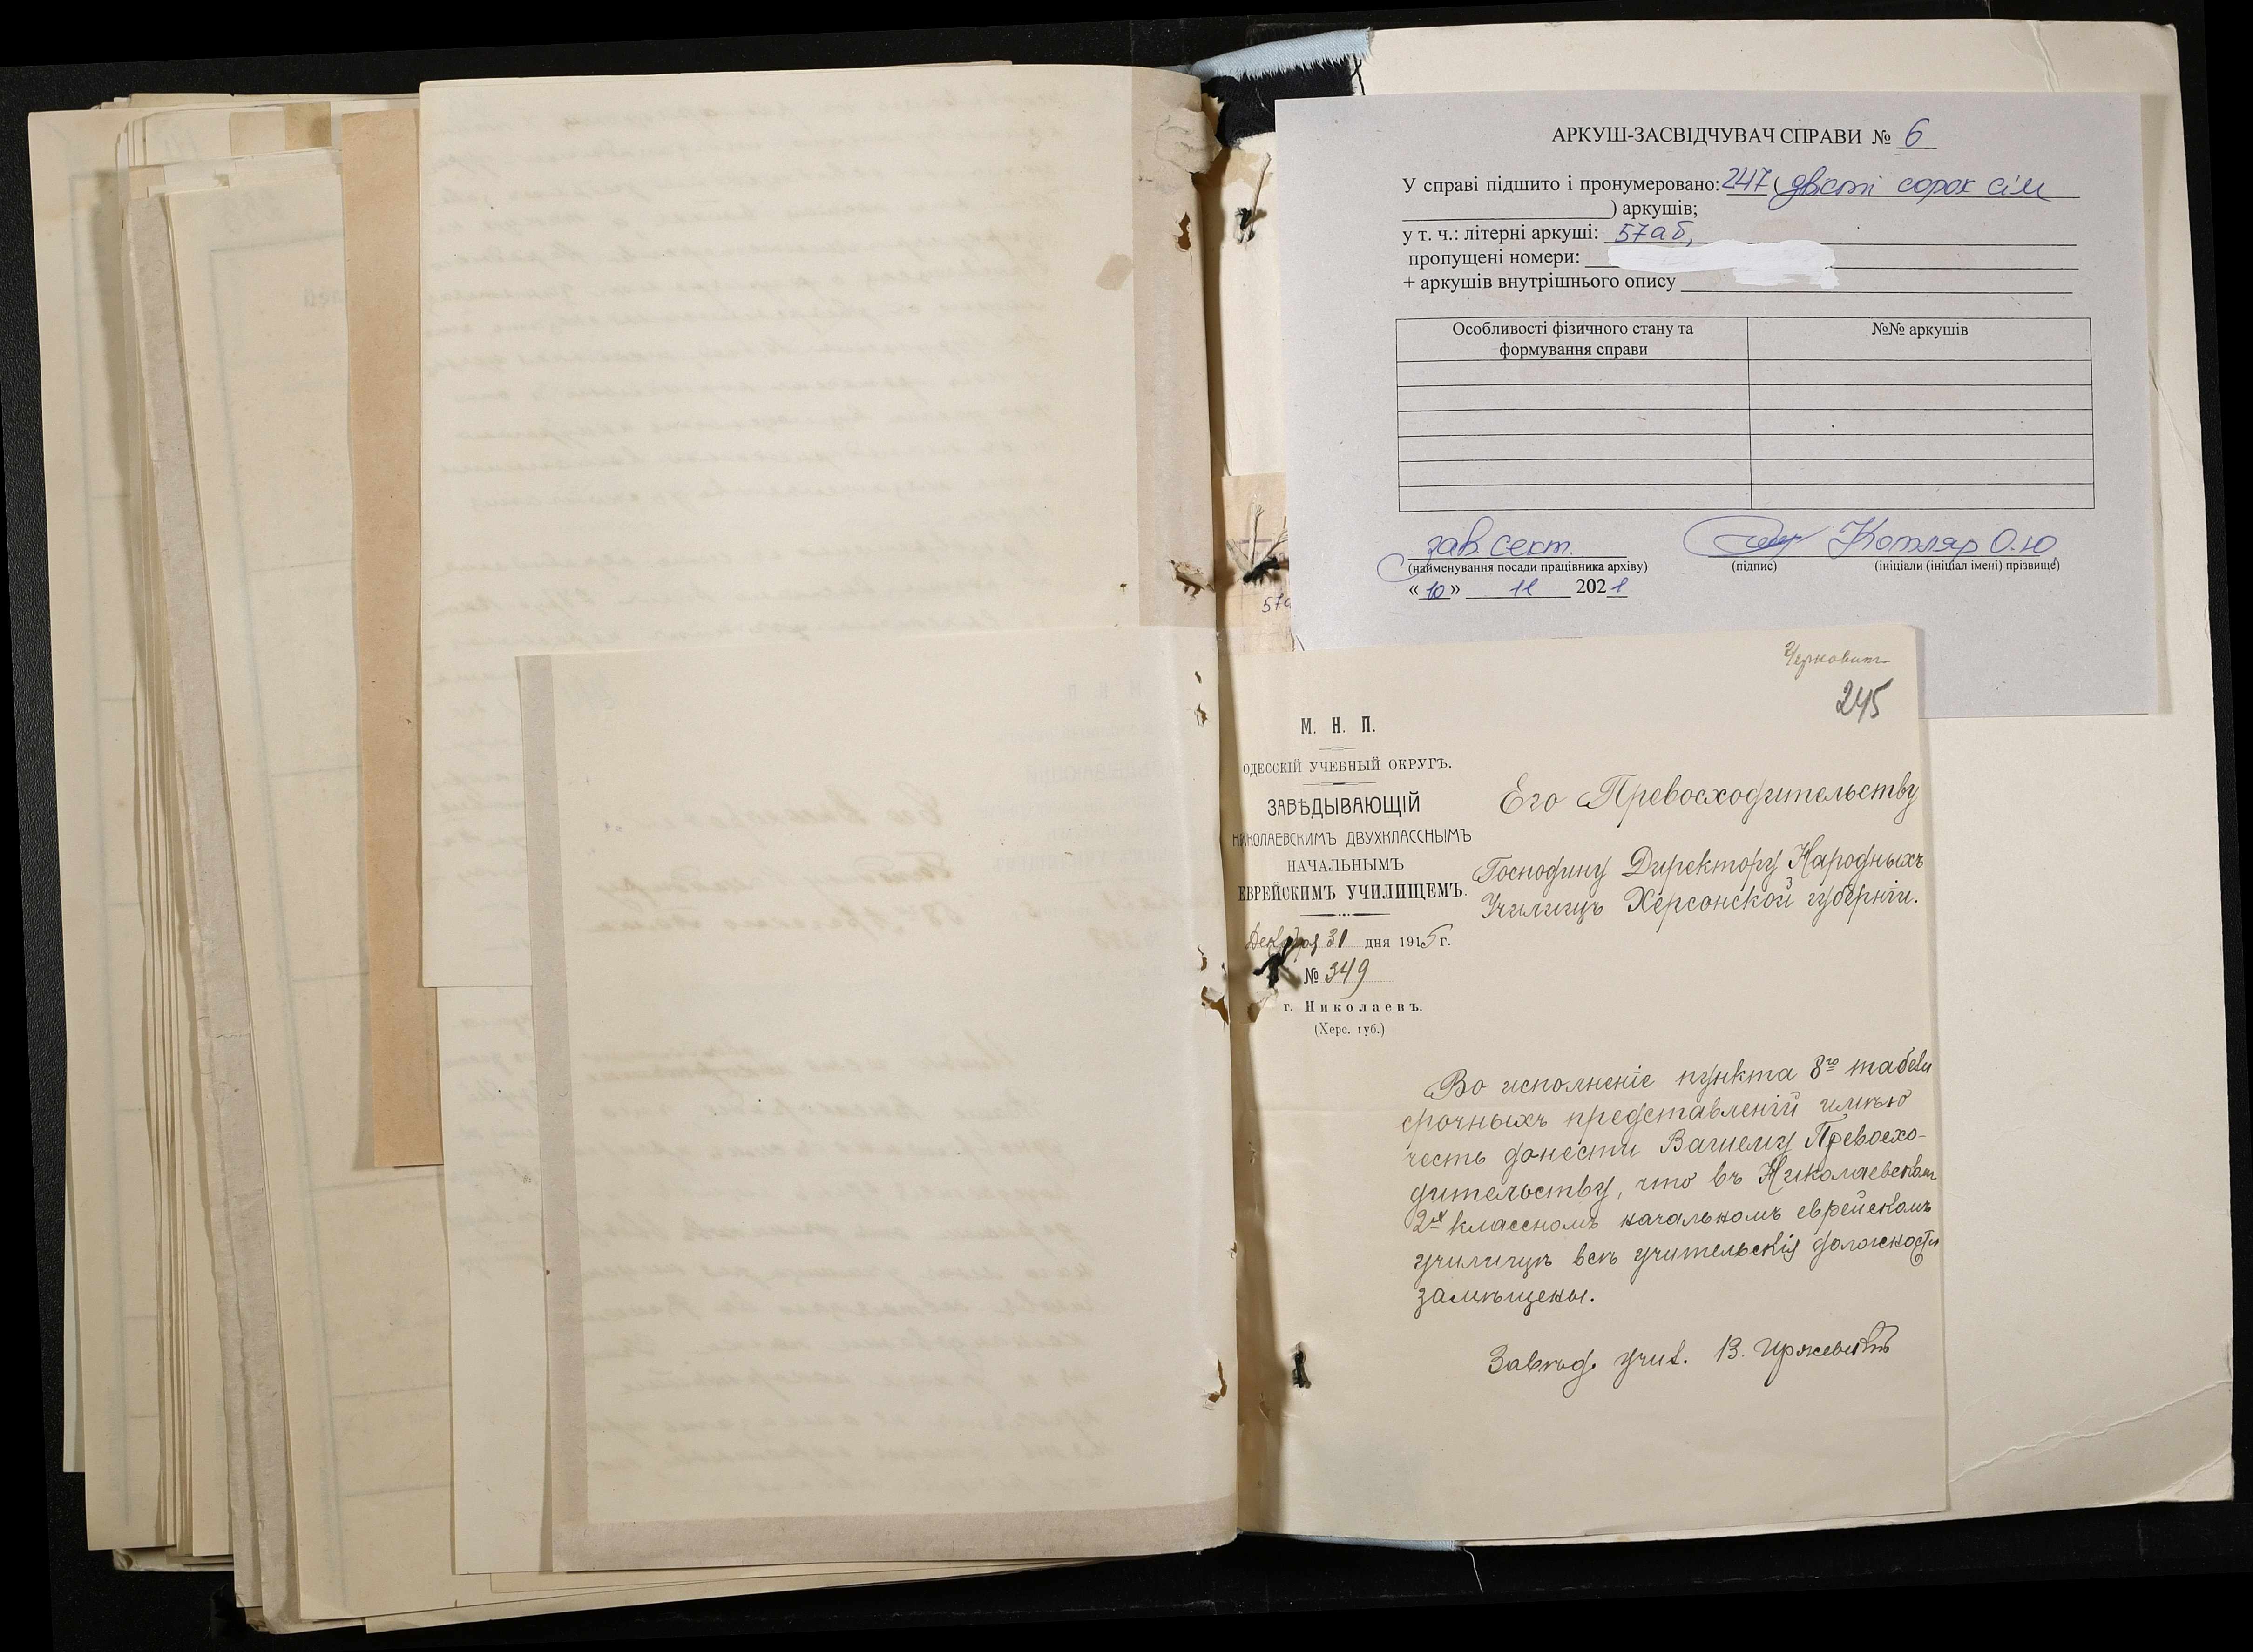 АРКУШ-ЗАСВІДЧУВАЧ СПРАВИ № 6
У справі підшито і пронумеровано: 247 (двісті сорок сім
) аркушів;
у т. ч.: літерні аркуші: 57а б,
пропущені номери:
+ аркушів внутрішнього опису
Особливості фізичного стану та
формування справи
№№ аркушів
зав. сект. Котляр О.Ю
(найменування посади працівника архіву) (підпис) (ініціали (ініціал імені) прізвище)
« 10 » 11 2021
57а
245
М. Н. П.
ОДЕССКІЙ УЧЕБНЫЙ ОКРУГЪ.
ЗАВѢДЫВАЮЩІЙ
НИКОЛАЕВСКИМЪ ДВУХКЛАССНЫМЪ
НАЧАЛЬНЫМЪ
ЕВРЕЙСКИМЪ УЧИЛИЩЕМЪ.
Декабря 31 дня 1915 г.
№ 349
г. Николаевъ.
(Херс. губ.)
Его Превосходительству
Господину Директору Народныхъ
Училищъ Херсонской губерніи.
Во исполненіе пункта 8го табели
срочныхъ представленій имѣю
честь донести Вашему Превосхо-
дительству, что въ Николаевскомъ
2хъ классномъ начальномъ еврейскомъ
училищѣ всѣ учительскія должности
замѣщены.
Завѣд. учил. В.